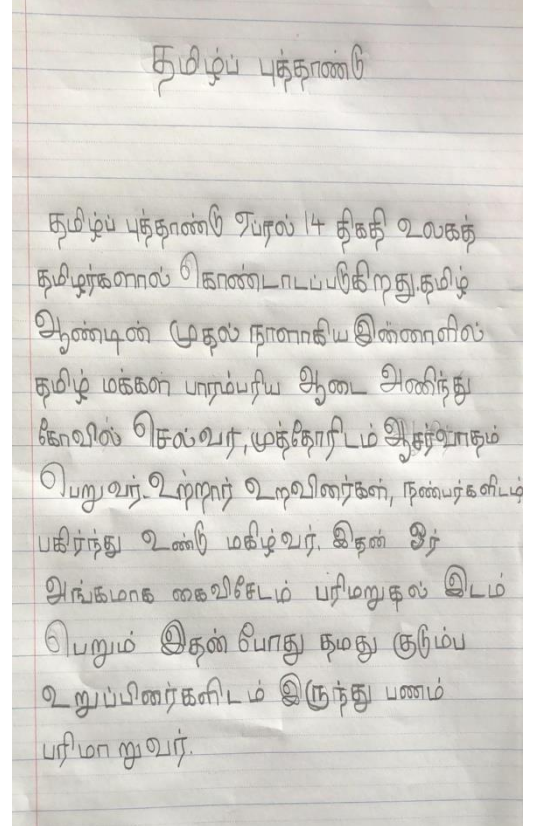 தமிழ்ப் புத்தாண்டு
தமிழ்ப் புத்தாண்டு ஏப்ரல் 14 திகதி உலகத்
தமிழர்களால் கொண்டாடப்படுகிறது.தமிழ்
ஆண்டின் முதல் நாளாகிய இன்னாளில்
தமிழ் மக்கள் பாரம்பரிய ஆடை அணிந்து
கோவில் செல்வர்,முத்தோரிடம் ஆசர்வாதம்
பெறுவர்.உற்றார் உறவினர்கள், நண்பர்களிடம்
பகிர்ந்து உண்டு மகிழ்வர். இதன் ஓர்
அங்கமாக கைவிசேடம் பரிமறுதல் இடம்
பெறும் இதன் போது தமது குடும்ப
உறுப்பினர்களிடம் இருந்து பணம்
பரிமாறுவர்.